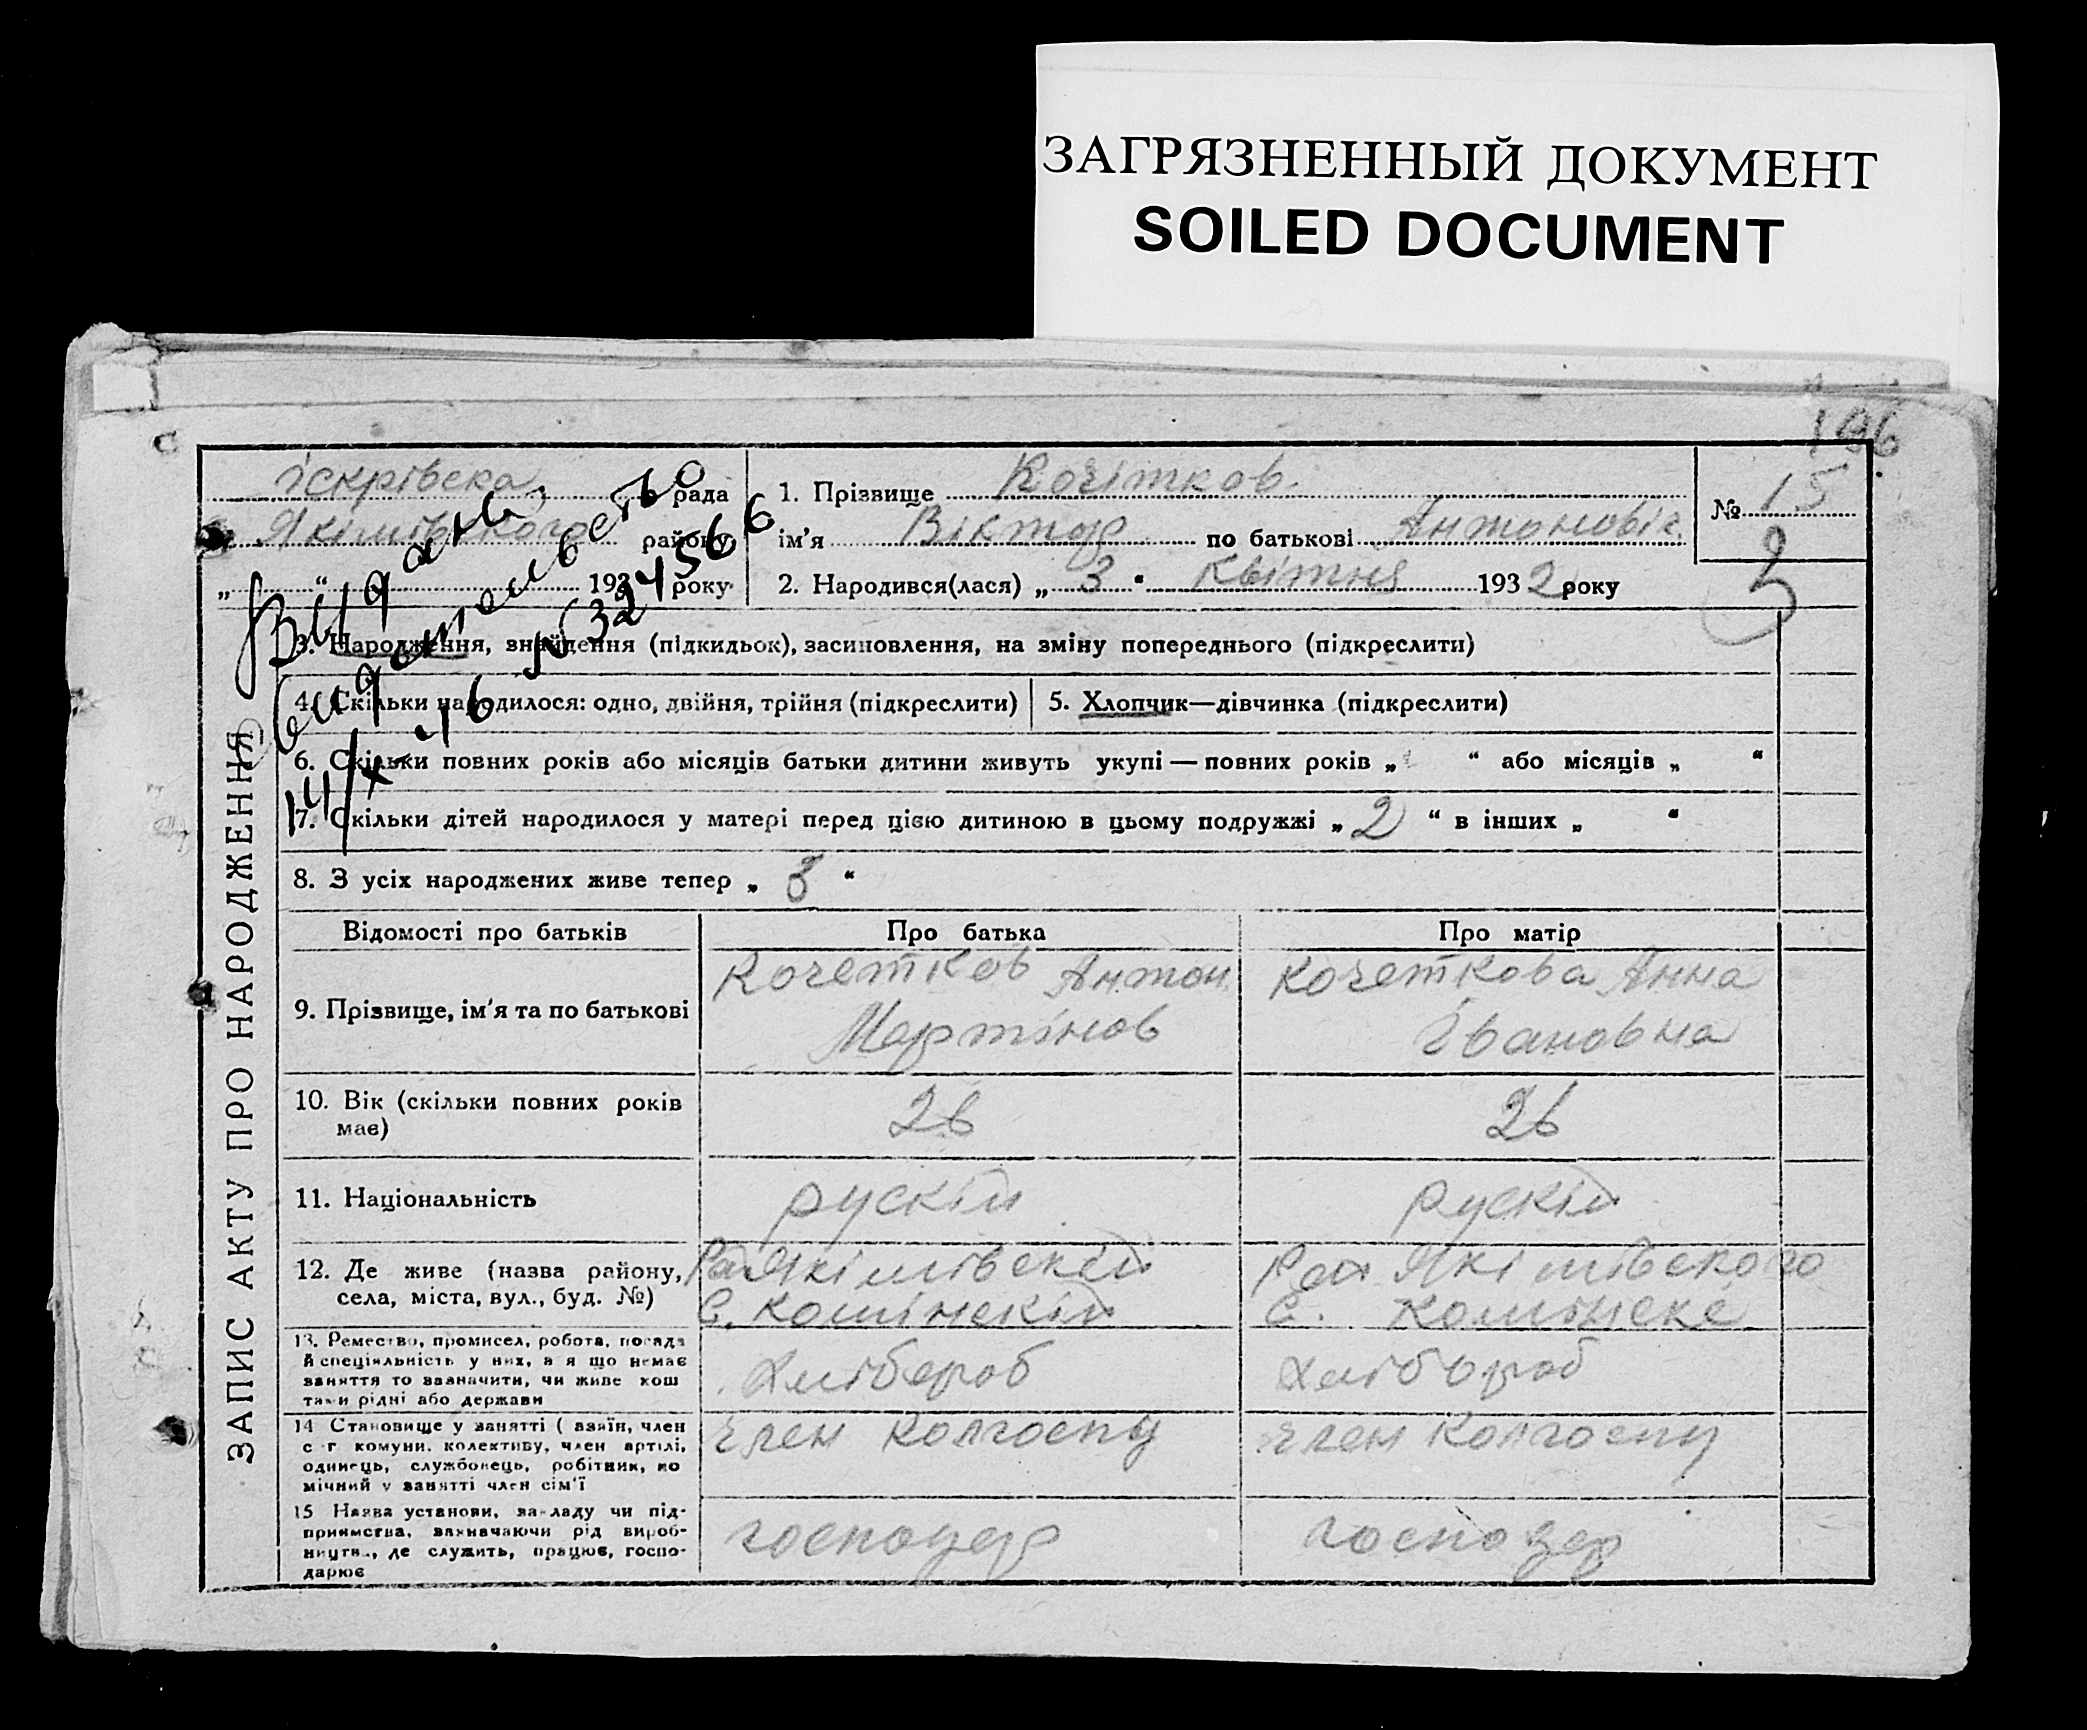 ЗАГРЯЗНЕННЫЙ ДОКУМЕНТ
SOILED DOCUMENT
196
іскрівска рада
Якімівського району
„ “ 193 року
1. Прізвище Кочітков
ім'я Віктор по батькові Антоновіч
2. Народився(лася) „ 3 “ квітня 1932 року
№ 15
3
Выдать
свидетельство
14/X-46 N 3245666
ЗАПИС АКТУ ПРО НАРОДЖЕННЯ
3. Народження, знайдення (підкидьок), засиновлення, на зміну попереднього (підкреслити)
4. Скільки народилося: одно, двійня, трійня (підкреслити)
5. Хлопчик—дівчинка (підкреслити)
6. Скільки повних років або місяців батьки дитини живуть укупі — повних років „ “ або місяців „ “
7. Скільки дітей народилося у матері перед цією дитиною в цьому подружжі „ 2 “ в інших „ “
8. З усіх народжених живе тепер „ 3 “
Відомості про батьків Про батька Про матір
9. Прізвище, ім'я та по батькові
Кочетков Антон
Мартінов
Кочеткова Анна
Івановна
10. Вік (скільки повних років
має)
26
26
11. Національність
рускій
рускій
12. Де живе (назва району,
села, міста, вул., буд. №)
Рай Якімівскій
С.
Рай Якімівского
С.
13. Ремество, промисел, робота, посада
й спеціяльність у них, а я що немає
заняття то зазначити, чи живе кош
тами рідні або держави
Хлібороб
Хлібороб
14 Становище у занятті ( хазяїн, член
с г комуни, колективу, член артілі,
одинець, службовець, робітник, по
мічний у занятті член сім'ї
член колгоспу
член колгоспу
15 Назва установи, закладу чи під-
приємства, зазначаючи рід вироб-
ництв., де служить, працює, госпо-
дарює
господар
господар